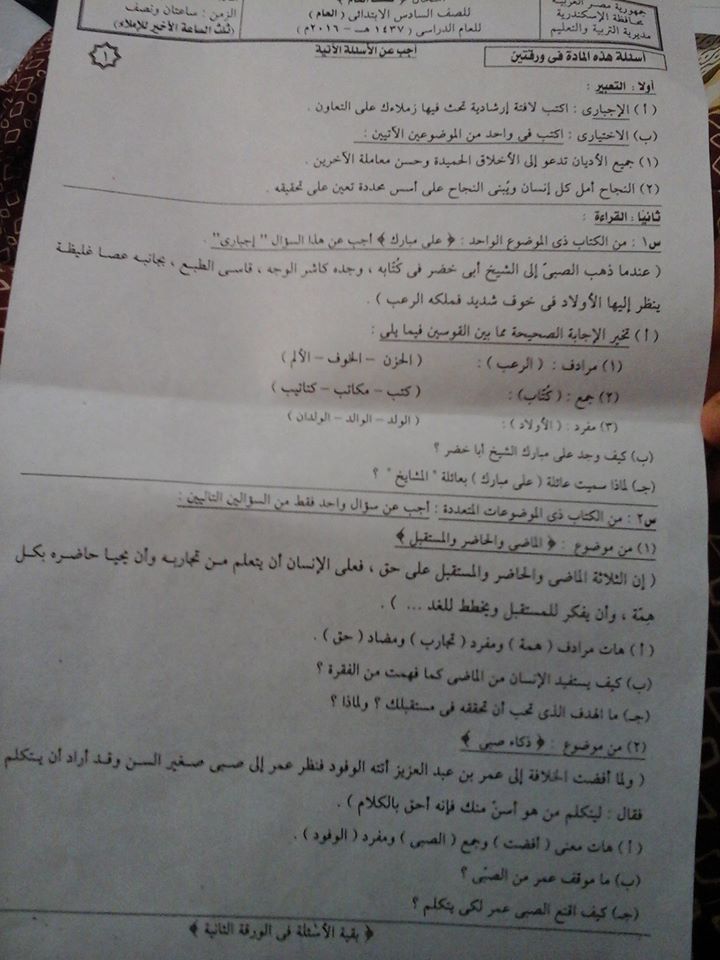 جمهورية مصر العربية
محافظة الإسكندرية
مديرية التربية والتعليم
للصف السادس الابتدائى ( العام )
للعام الدراسى ( ١٤٣٧ هـ - ٢٠١٦م )
الزمن : ساعتان ونصف
( ثلث الساعة الأخير للإملاء )
أسئلة هذه المادة فى ورقتين
أجب عن الأسئلة الآتية
١
أولا : التعبير :
( أ ) الإجبارى : اكتب لافتة إرشادية تحث فيها زملاءك على التعاون .
(ب) الاختيارى : اكتب فى واحد من الموضوعين الآتيين :
(١) جميع الأديان تدعو إلى الأخلاق الحميدة وحسن معاملة الآخرين .
(٢) النجاح أمل كل إنسان ويُبنى النجاح على أسس محددة تعين على تحقيقه .
ثانيًا : القراءة :
س١ : من الكتاب ذى الموضوع الواحد : ﴿ على مبارك ﴾ أجب عن هذا السؤال " إجبارى" .
( عندما ذهب الصبىّ إلى الشيخ أبى خضر فى كُتّابه ، وجده كاشر الوجه ، قاسى الطبع ، بجانبه عصا غليظة
ينظر إليها الأولاد فى خوف شديد فملكه الرعب ) .
( أ ) تخير الإجابة الصحيحة مما بين القوسين فيما يلى :
(١) مرادف : ( الرعب ) : ( الحزن - الخوف - الألم )
(٢) جمع : ( كُتّاب) : ( كتب - مكاتب - كتاتيب )
(٣) مفرد : ( الأولاد ) : ( الولد - الوالد - الولدان )
(ب) كيف وجد على مبارك الشيخ أبا خضر ؟
(جـ) لماذا سميت عائلة ( على مبارك ) بعائلة " المشايخ " ؟
س٢ : من الكتاب ذى الموضوعات المتعددة : أجب عن سؤال واحد فقط من السؤالين التاليين :
(١) من موضوع : ﴿ الماضى والحاضر والمستقبل ﴾
( إن الثلاثة الماضى والحاضر والمستقبل على حق ، فعلى الإنسان أن يتعلم من تجاربه وأن يحيا حاضره بكل
هِمّة ، وأن يفكر للمستقبل ويخطط للغد ... ) .
( أ ) هات مرادف ( همة ) ومفرد ( تجارب ) ومضاد ( حق ) .
(ب) كيف يستفيد الإنسان من الماضى كما فهمت من الفقرة ؟
(جـ) ما الهدف الذى تحب أن تحققه فى مستقبلك ؟ ولماذا ؟
(٢) من موضوع : ﴿ ذكاء صبى ﴾
( ولما أفضت الخلافة إلى عمر بن عبد العزيز أتته الوفود فنظر عمر إلى صبى صغير السن وقد أراد أن يتكلم
فقال : ليتكلم من هو أسنّ منك فإنه أحق بالكلام ) .
( أ ) هات معنى ( أفضت ) وجمع ( الصبى ) ومفرد ( الوفود ) .
(ب) ما موقف عمر من الصبّى ؟
(جـ) كيف اقنع الصبى عمر لكى يتكلم ؟
﴿ بقية الأسئلة فى الورقة الثانية ﴾